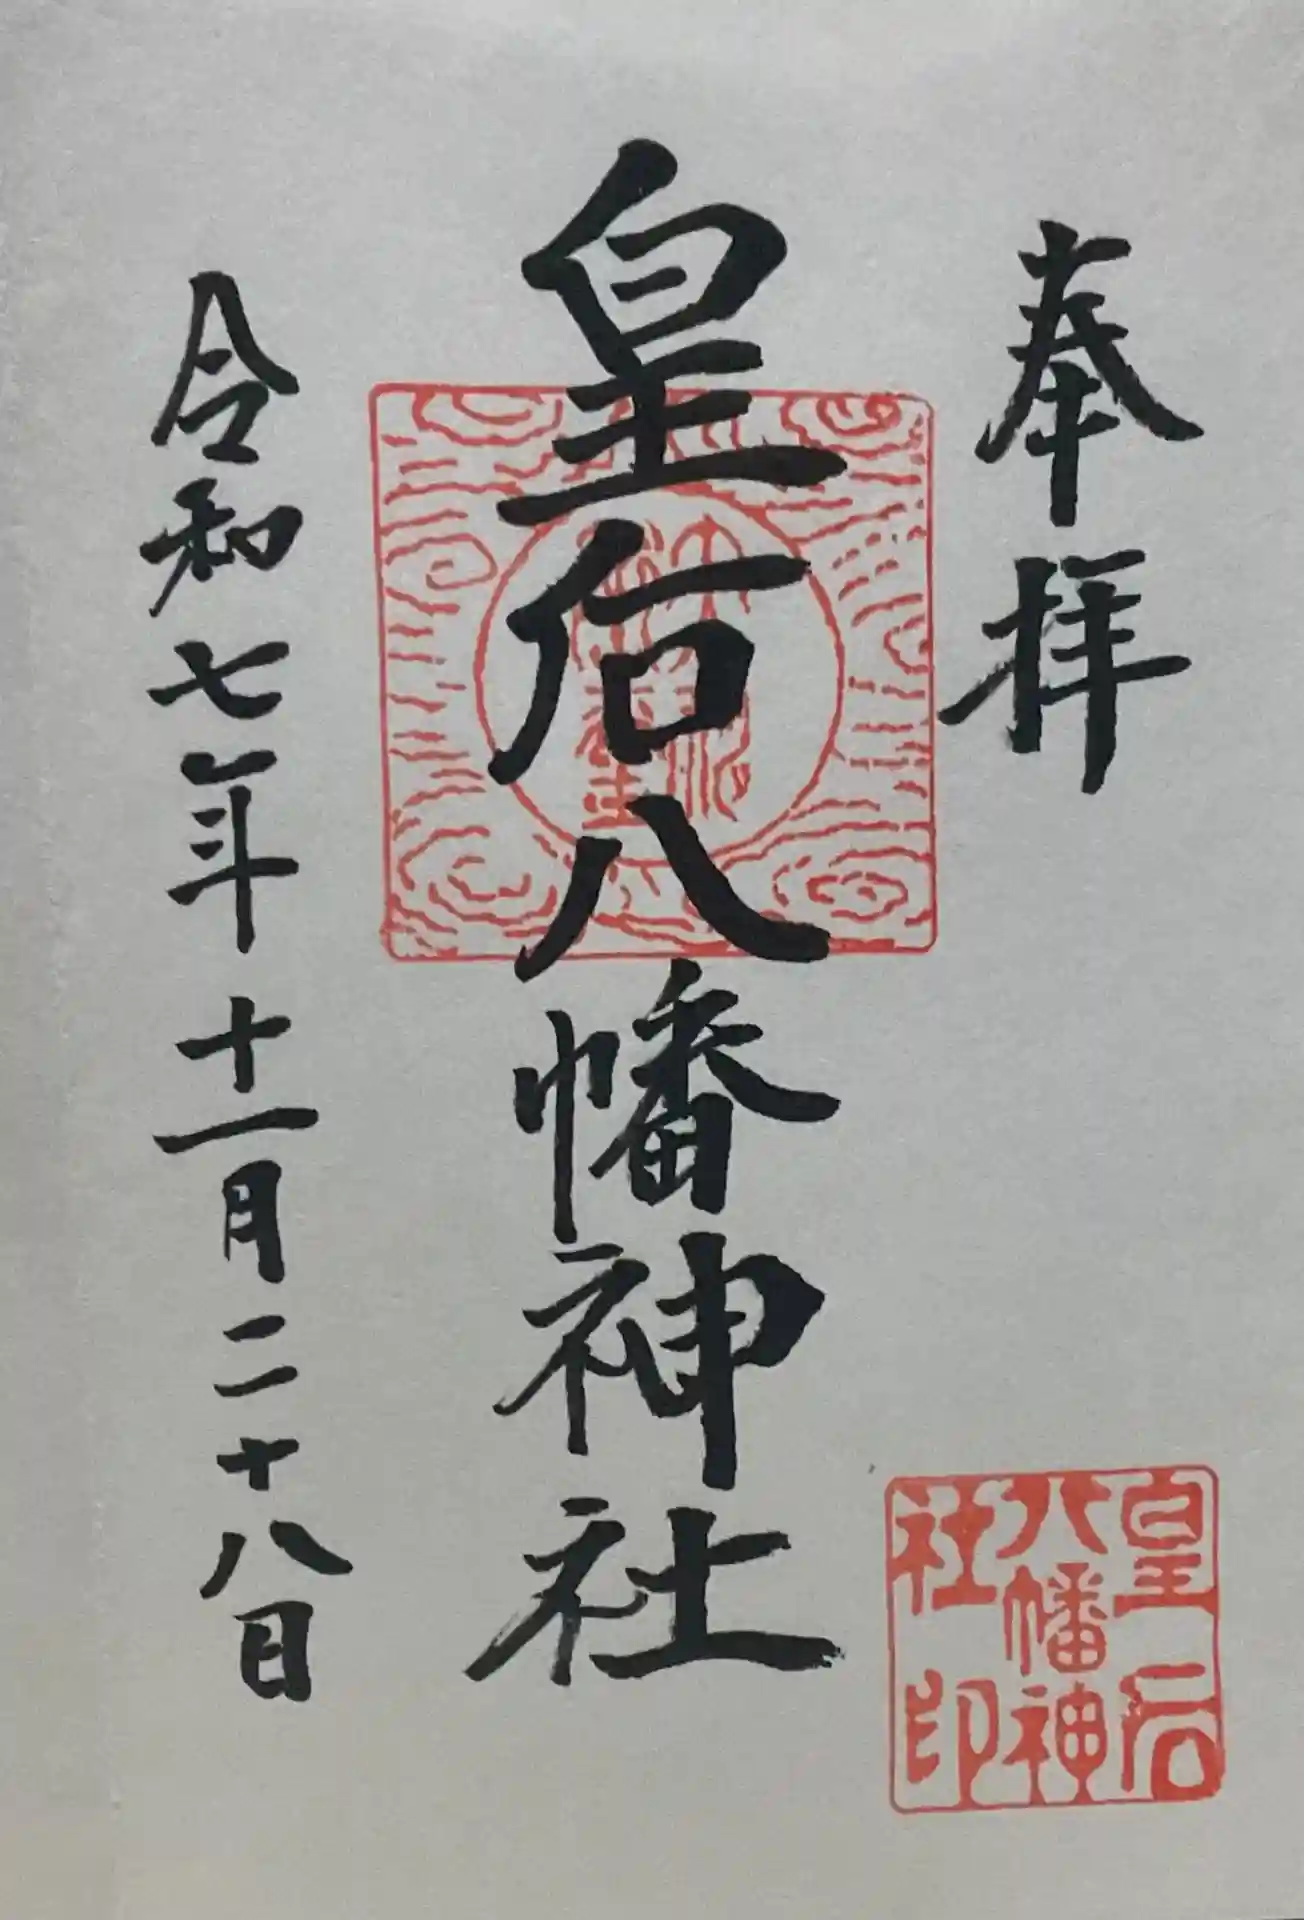 奉拝
皇后八幡神社
令和七年十一月二十八日
皇后
八幡神
社印